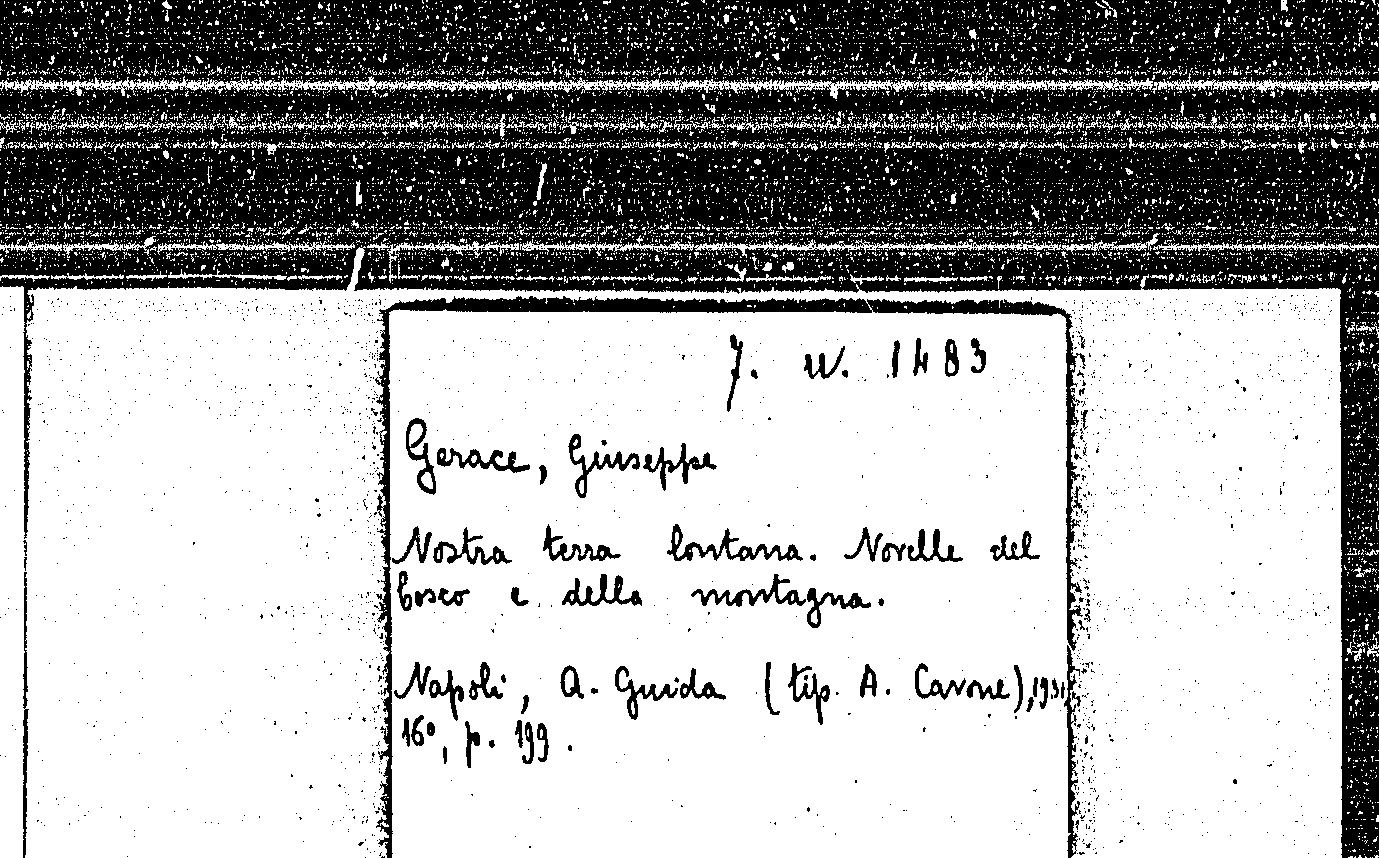 7. W. 1483
Gerace, Giuseppe
Nostra terra lontana. Novelle del
bosco e della montagna.
Napoli, A. Guida (tip. A. Cavone),
16º, p. 199.